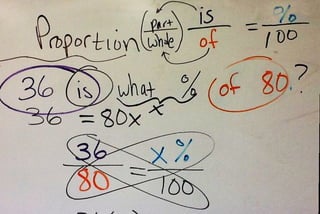 Proportion (part/whole) is/of = %/100
36 is what % of 80?
36 = 80x
36/80 = x%/100